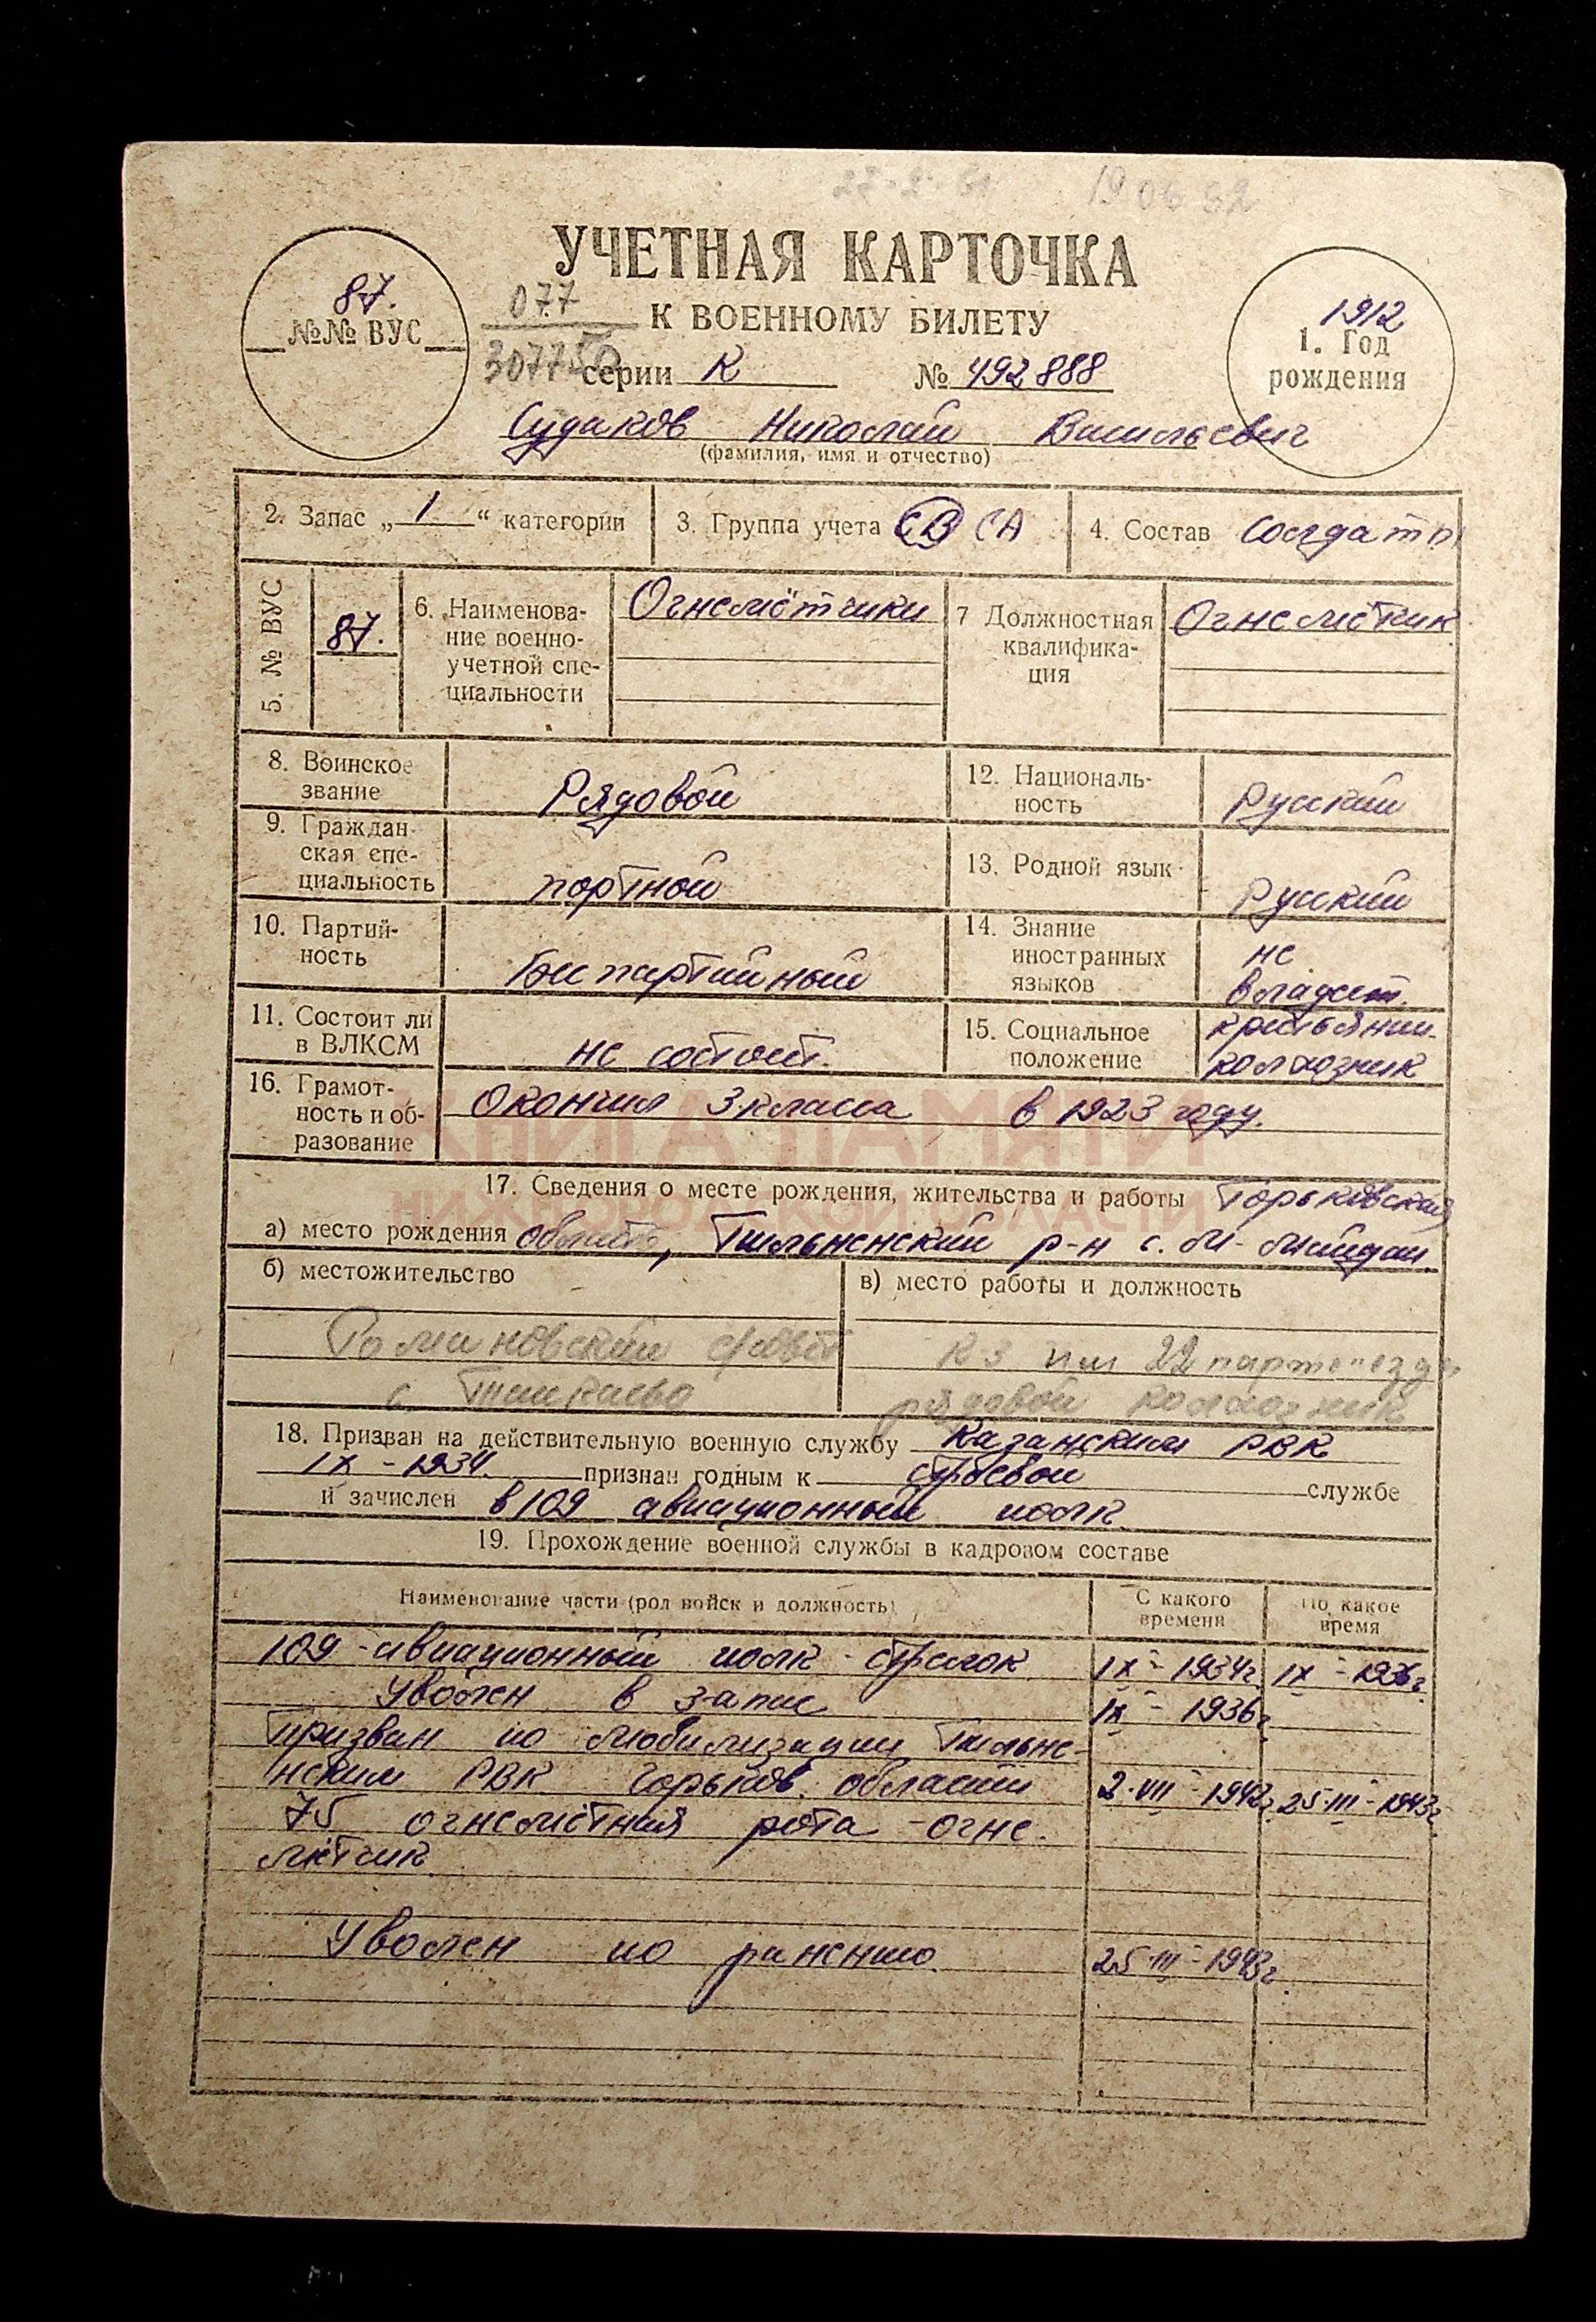 19 06 82
УЧЕТНАЯ КАРТОЧКА
87.
№№ ВУС
077
307750
К ВОЕННОМУ БИЛЕТУ
серии К № 492888
1912
1. Год
рождения
Судаков Николай Васильевич
(фамилия, имя и отчество)
2. Запас „1" категории
3. Группа учета СВ СА
4. Состав солдаты
5. № ВУС
87.
6. Наименова-
ние военно-
учетной спе-
циальности
Огнемётчики
7 Должностная
квалифика-
ция
Огнемётчик
8. Воинское
звание
Рядовой
12. Националь-
ность
Русский
9. Граждан-
ская спе-
циальность
портной
13. Родной язык
Русский
10. Партий-
ность
Беспартийный
14. Знание
иностранных
языков
не
владеет.
11. Состоит ли
в ВЛКСМ
не состоит.
15. Социальное
положение
крестьянин-
колхозник
16. Грамот-
ность и об-
разование
Окончил 3 класса в 1923 году.
КНИГА ПАМЯТИ
НИЖЕГОРОДСКОЙ ОБЛАСТИ
17. Сведения о месте рождения, жительства и работы Горьковская
а) место рождения область, р-н с.
б) местожительство
в) место работы и должность
с/совет
с.
к-з им 22 партсъезда
рядовой колхозник
18. Призван на действительную военную службу Казанским РВК
IX - 1934. признан годным к строевой службе
и зачислен в 109 авиационный полк
19. Прохождение военной службы в кадровом составе
Наименование части (род войск и должность)
С какого
времени
По какое
время
109 - авиационный полк - стрелок IX - 1934г. IX - 1936г.
Уволен в запас IX - 1936г.
Призван по мобилизации
РВК Горьков. области 2.VII - 1942г. 25.III - 1943г.
75 огнемётная рота - огне-
мётчик
Уволен по ранению. 25.III - 1943г.